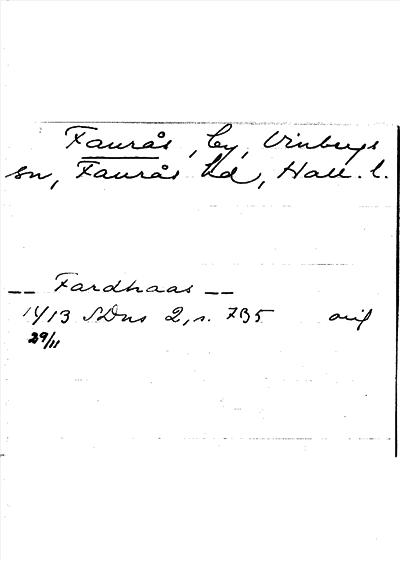 Faurås, by, Vinbergs
sn, Faurås hd, Hall. l.
-- Fardhaas --
1413 SDns 2, s. 735 orig
29/11